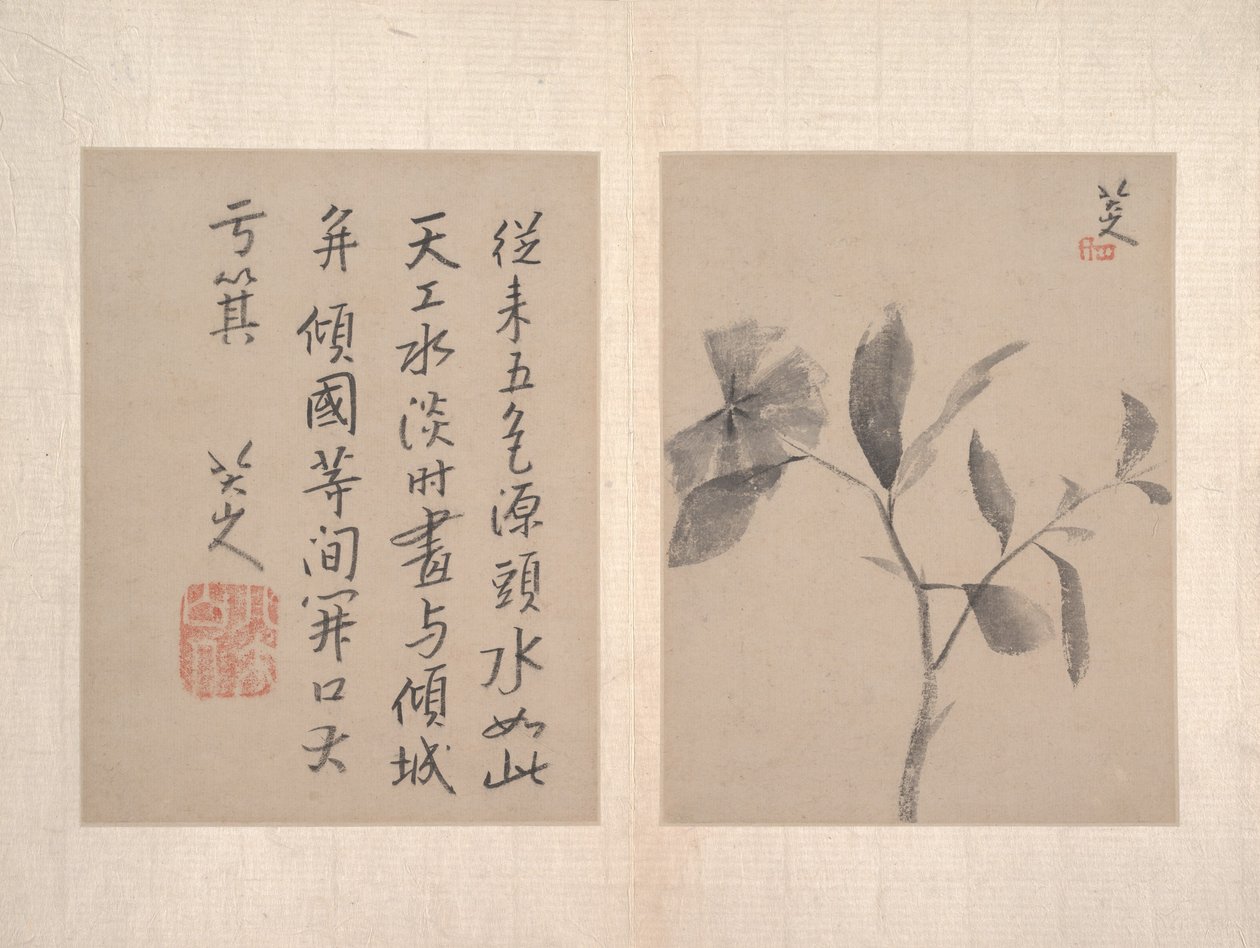 八大山人
從来五色源頭水如此
天工水淡时畫与傾城
并傾國等间開口大
亐箕
八大山人